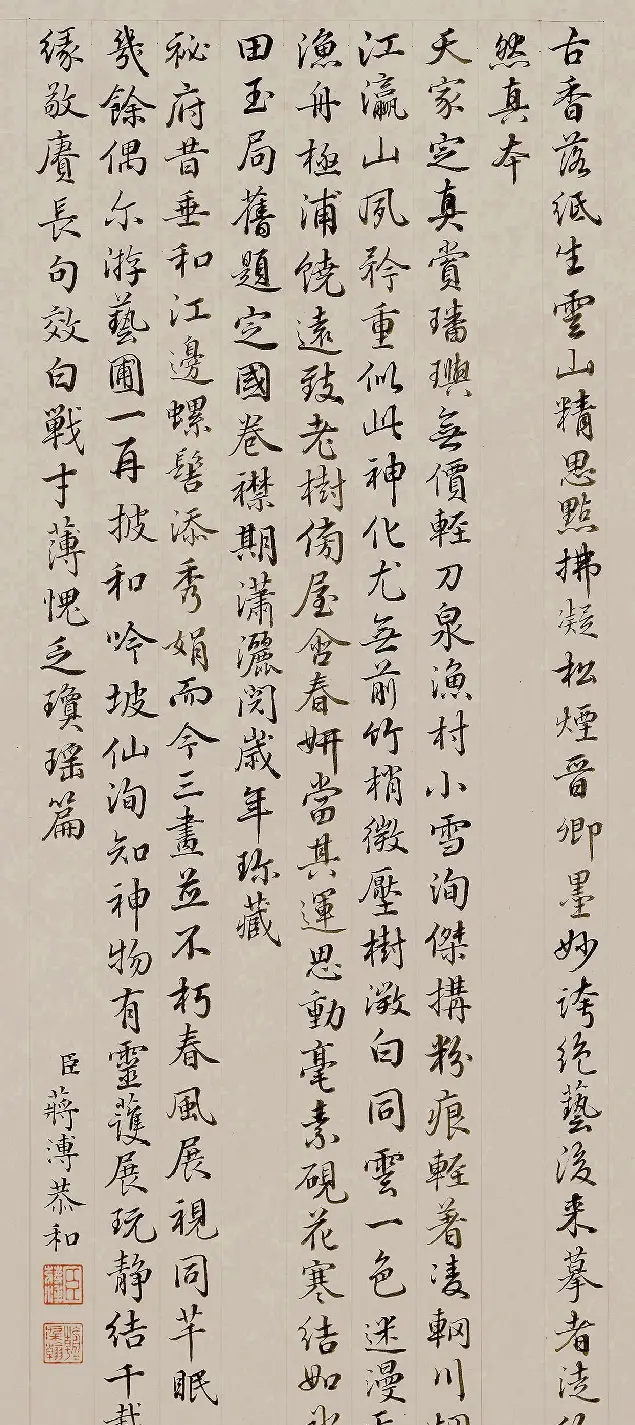 古香落紙生雲山精思點拂凝松煙晉卿墨妙誇絕藝後來摹者徒
然真本
天家定真賞璠璵無價輕刀泉漁村小雪洵傑搆粉痕輕著凌輞川
江瀛山夙矜重似此神化尤無前竹梢微壓樹澂白同雲一色迷漫天
漁舟極浦饒遠致老樹傍屋含春妍當其運思動毫素硯花寒結如
田玉局舊題定國卷襟期瀟灑閱歲年珎藏
祕府昔垂和江邊螺髻添秀娟而今三畫並不朽春風展視同芊眠
幾餘偶尓游藝圃一再披和吟坡仙洵知神物有靈護展玩静結千載
緣敬賡長句效白戰才薄愧乏瓊瑤篇
臣蔣溥恭和